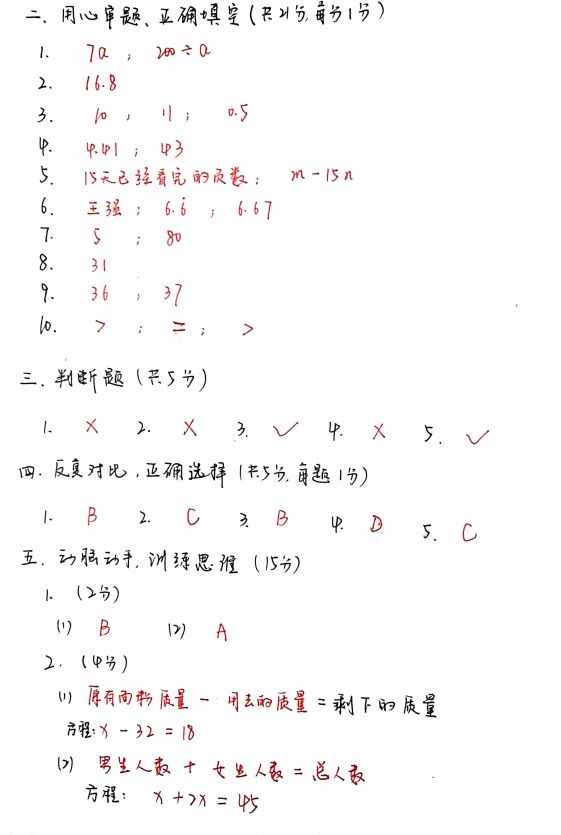 二、用心审题、正确填空(共21分,每分1分)
1. 7a ; 200÷a
2. 16.8
3. 10 , 11 ; 0.5
4. 4.41 ; 43
5. 15天已经看完的页数; m-15n
6. 王强 ; 6.6̇ ; 6.67
7. 5 ; 80
8. 31
9. 36 ; 37
10. > ; = ; >
三、判断题(共5分)
1. × 2. × 3. ✓ 4. × 5. ✓
四、反复对比,正确选择(共5分,每题1分)
1. B 2. C 3. B 4. D 5. C
五、动脑动手,训练思维(15分)
1. (2分)
(1) B (2) A
2. (4分)
(1) 原有面粉质量 - 用去的质量 = 剩下的质量
方程: x - 32 = 18
(2) 男生人数 + 女生人数 = 总人数
方程: x + 2x = 45